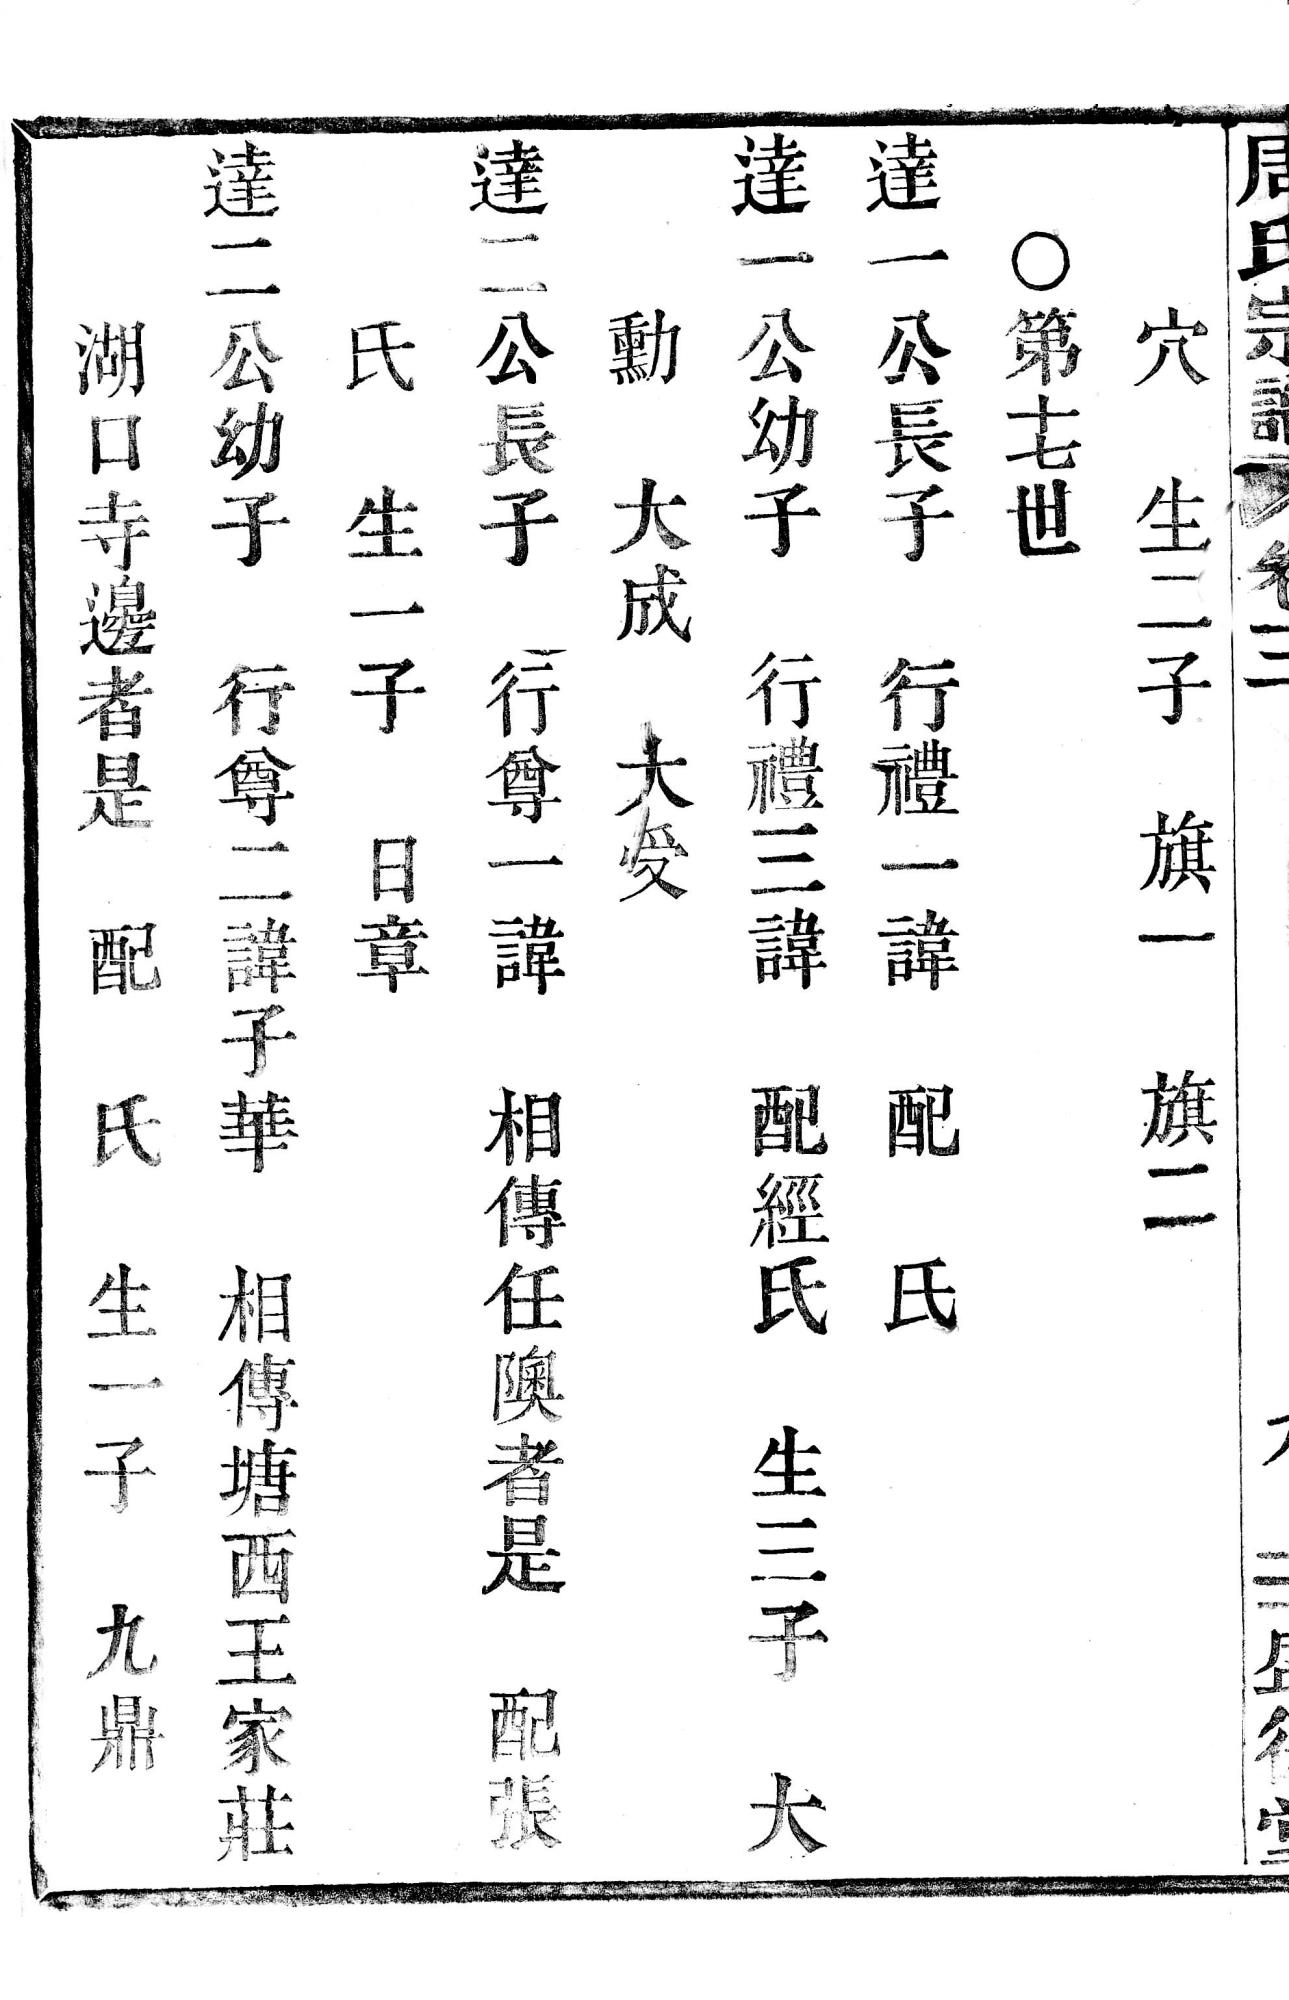 周氏宗譜 卷三
穴 生二子 旗一 旗二
○第十七世
達一公長子 行禮一諱 配 氏
達一公幼子 行禮三諱 配經氏 生三子 大
勳 大成 大受
達二公長子 行尊一諱 相傳任隩者是 配張
氏 生一子 日章
達二公幼子 行尊二諱子華 相傳塘西王家莊
湖口寺邊者是 配 氏 生一子 九鼎